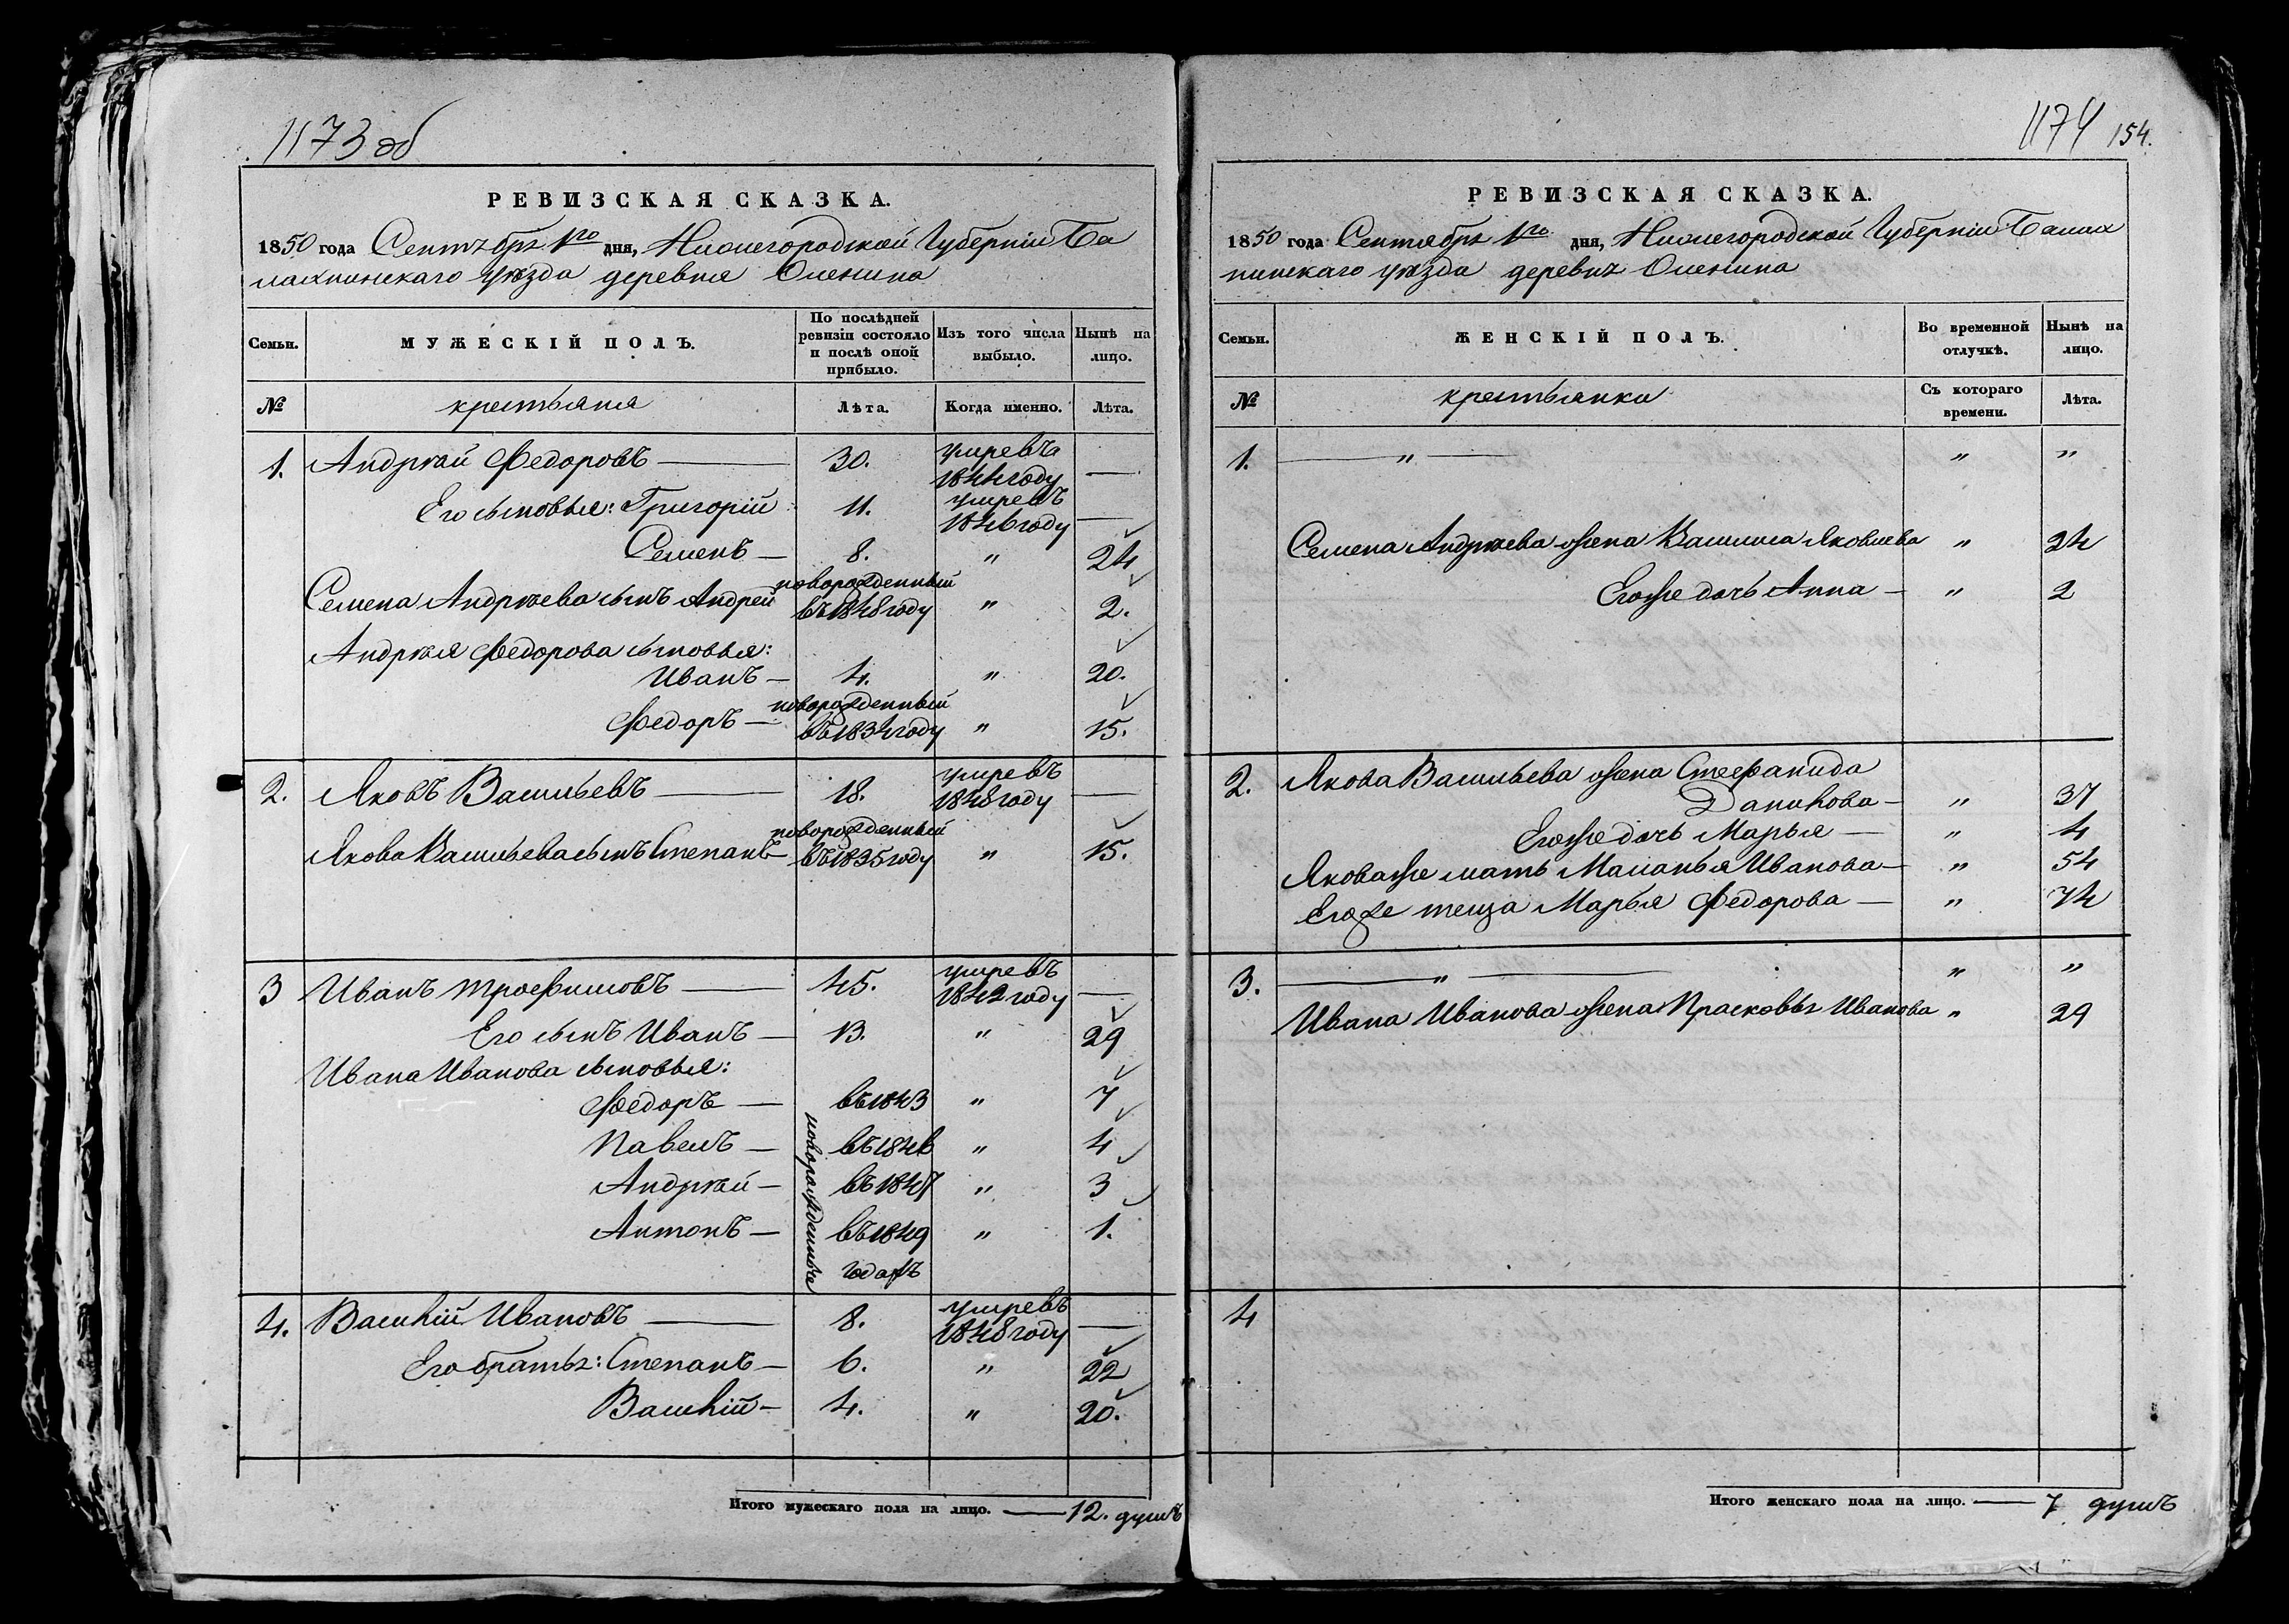 1173 об
РЕВИЗСКАЯ СКАЗКА.
1850 года Сентября 1го дня, Нижегородской Губерніи Ба
лахнинскаго уѣзда деревня Оленина
Семьи. МУЖЕСКІЙ ПОЛЪ. По послѣдней ревизіи состояло и послѣ оной прибыло. Изъ того числа выбыло. Нынѣ на лицо.
№ крестьяня Лѣта. Когда именно. Лѣта.
1. Андрѣй Федоровъ — 30. умревъ 1844 году —
Его сыновья: Григорій 11. умревъ 1846 году —
Семенъ — 8. " 24
Семена Андрѣева сынъ Андрей новорожденный въ 1848 году " 2.
Андрѣя Федорова сыновья:
Иванъ — 4. " 20.
Федоръ — новорожденный въ 1834 году " 15.
2. Яковъ Васильевъ — 18. умревъ 1848 году —
Якова Васильева сынъ Степанъ новорожденный въ 1835 году " 15.
3 Иванъ Трофимовъ — 45. умревъ 1842 году —
Его сынъ Иванъ — 13. " 29
Ивана Иванова сыновья:
Федоръ — въ 1843 " 7
Павелъ — въ 1846 " 4
Андрѣй — въ 1847 " 3
Антонъ — въ 1849 " 1.
новорожденные
годахъ
4. Василій Ивановъ — 8. умревъ 1848 году —
Его братья: Степанъ — 6. " 22
Василій — 4. " 20.
Итого мужескаго пола на лицо. — 12. душъ
1174 154.
РЕВИЗСКАЯ СКАЗКА.
1850 года Сентября 1го дня, Нижегородской Губерніи Балах
нинскаго уѣзда деревня Оленина
Семьи. ЖЕНСКІЙ ПОЛЪ. Во временной отлучкѣ. Нынѣ на лицо.
№ крестьянки Съ котораго времени. Лѣта.
1. — " — " "
Семена Андрѣева жена Васили­са Яковлева " 24
Егоже дочь Анна — " 2
2. Якова Васильева жена Стефанида
Данилова — " 37
Егоже дочь Марья — " 4
Якова же мать Маланья Иванова — " 54
Егоже теща Марья Федорова — " 74
3. — " — " "
Ивана Иванова жена Прасковья Иванова " 29
4
Итого женскаго пола на лицо. — 7 душъ